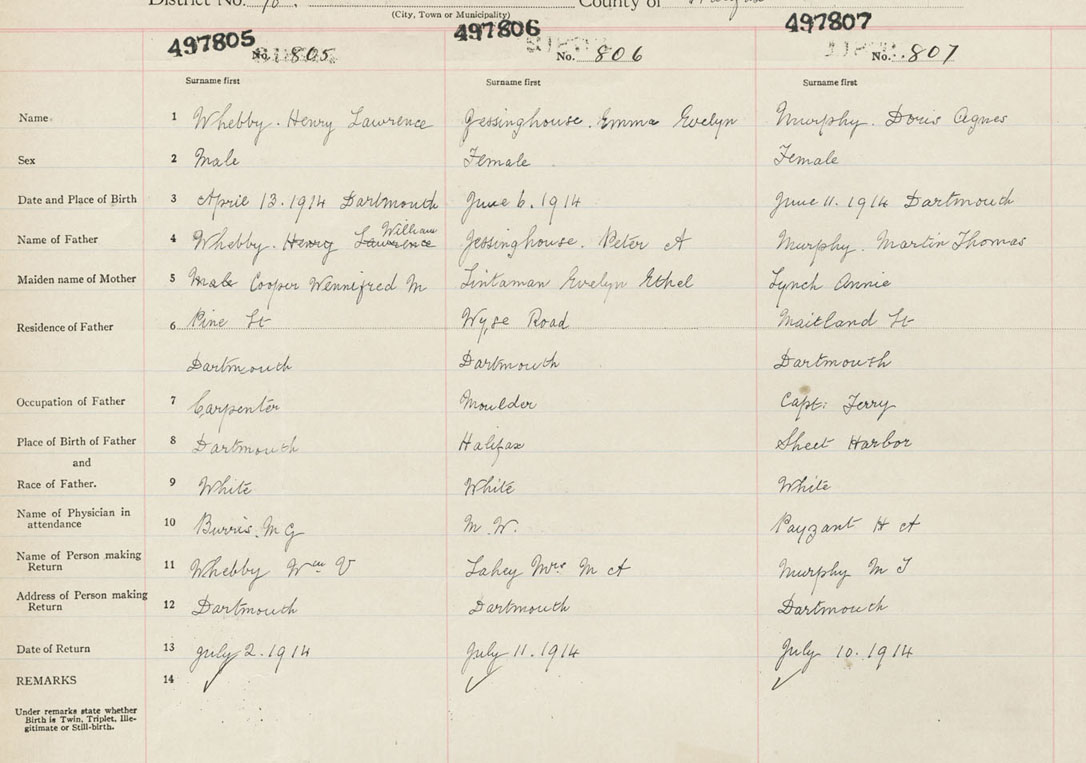 District No. 10. County of
(City, Town or Municipality)
497805 497806 497807
No. 805 No. 806 No. 807
Surname first Surname first Surname first
Name 1 Whebby. Henry Lawrence Jessinghouse. Emma Evelyn Murphy. Doris Agnes
Sex 2 Male Female Female
Date and Place of Birth 3 April 13. 1914 Dartmouth June 6. 1914 June 11. 1914 Dartmouth
William
Name of Father 4 Whebby. Henry Lawrence Jessinghouse. Peter A Murphy. Martin Thomas
Maiden name of Mother 5 Male Cooper Wennifred M Lintaman Evelyn Ethel Lynch Annie
Residence of Father 6 Pine St Wyse Road Maitland St
Dartmouth Dartmouth Dartmouth
Occupation of Father 7 Carpenter Moulder Capt: Ferry
Place of Birth of Father 8 Dartmouth Halifax Sheet Harbor
and
Race of Father. 9 White White White
Name of Physician in
attendance 10 Burris. M G M. W. Payzant H A
Name of Person making
Return 11 Whebby Wm V Lahey Mrs M A Murphy M T
Address of Person making
Return 12 Dartmouth Dartmouth Dartmouth
Date of Return 13 July 2. 1914 July 11. 1914 July 10. 1914
REMARKS 14
Under remarks state whether
Birth is Twin, Triplet, Ille-
gitimate or Still-birth.